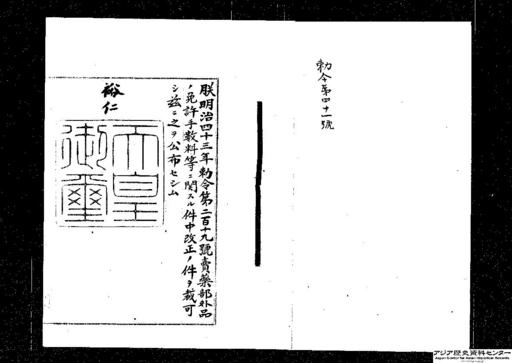 勅令第四十一號
朕明治四十三年勅令第二百十九號賣藥部外品
ノ免許手數料等ニ關スル件中改正ノ件ヲ裁可
シ茲ニ之ヲ公布セシム
裕仁
天皇
御璽
アジア歴史資料センター
Japan Center for Asian Historical Records